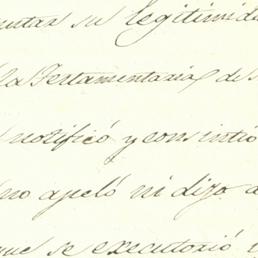 su legitimid
la Testamentaria de
notificó y consintió
no apeló ni dijo
que se executorió